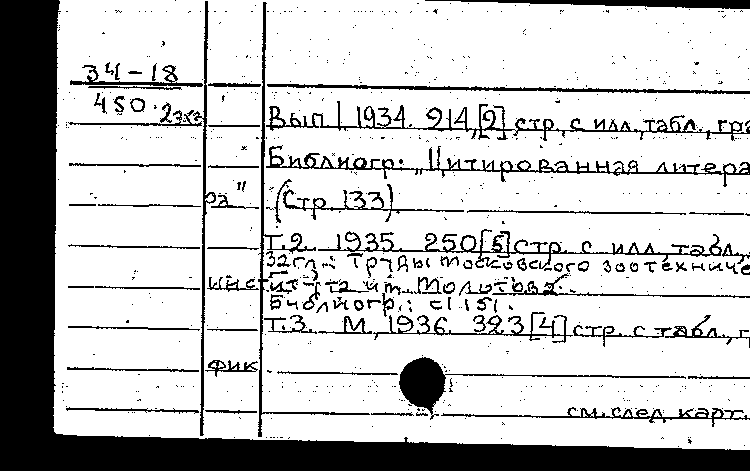 34-18
450.2экз
Вып 1. 1934. 214,[2] стр, с илл, табл., гра
Библиогр: „Цитированная литера
ра" (Стр. 133).
Т.2. 1935. 250[5] стр. с илл, табл.,
32 гл.: Труды московского зоотехниче
института им. Молотова.
Библиогр.: с 151.
Т.3. М, 1936. 323[4] стр. с табл., г
фик
см. след. карт.